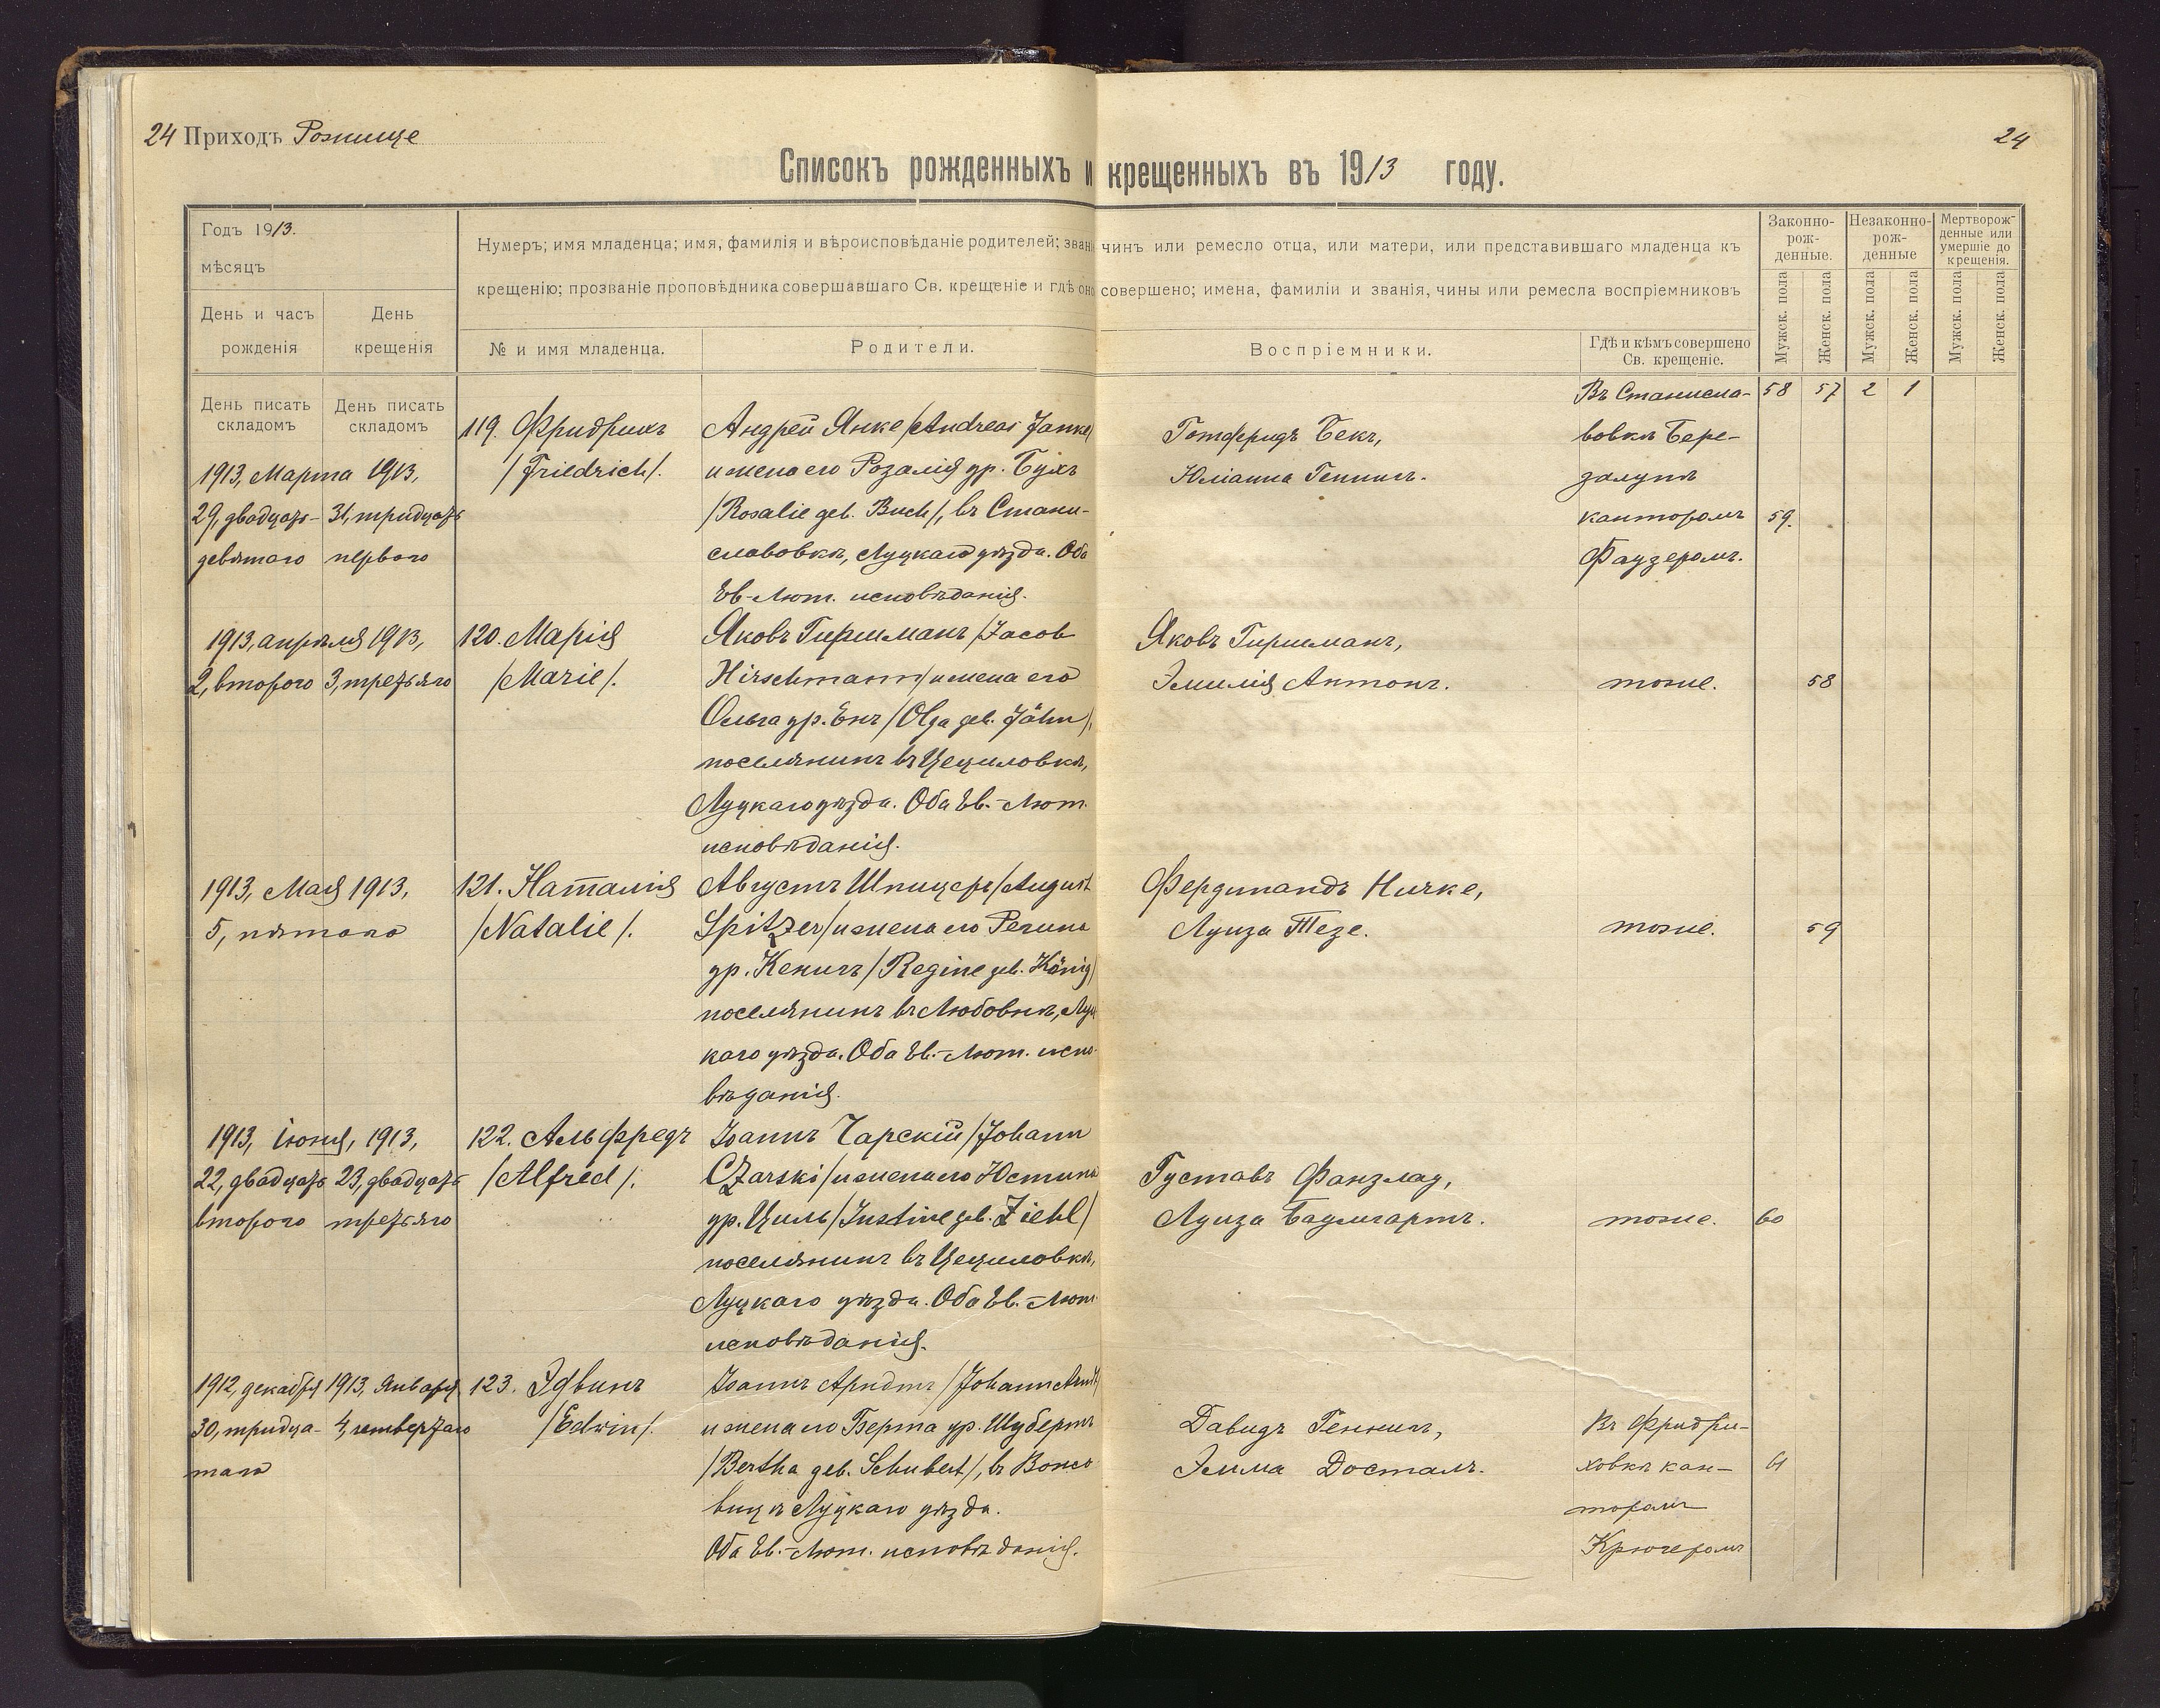 24 Приходъ Рожище
24
Списокъ рожденныхъ и крещенныхъ въ 1913 году.
Годъ 1913.
мѣсяцъ
День и часъ рожденія
День крещенія
Нумеръ; имя младенца; имя, фамилія и вѣроисповѣданіе родителей; зван чинъ или ремесло отца, или матери, или представившаго младенца къ
крещенію; прозваніе проповѣдника совершавшаго Св. крещеніе и гдѣ оно совершено; имена, фамиліи и званія, чины или ремесла воспріемниковъ
№ и имя младенца.
Родители.
Воспріемники.
Гдѣ и кѣмъ совершено
Св. крещеніе.
Законно-
рож-
денные.
Незаконно-
рож-
денные
Мертворож-
денные или
умершіе до
крещенія.
Мужск. пола
Женск. пола
Мужск. пола
Женск. пола
Мужск. пола
Женск. пола
58 57 2 1
День писать
складомъ
День писать
складомъ
1913, Марта 1913,
29, двадцать- 31, тридцать
девятаго первого
119. Фридрихъ
/Friedrich/.
Андрей Янке /Andreas Janke/
и жена его Розалія ур. Бухъ
/Rosalie geb. Buch/, въ Стани-
славовкѣ, Луцкаго уѣзда. Оба
Ев-Лют. исповѣданія.
Готфридъ Бекъ,
Юліанна Геннигъ.
Въ Станисла-
вовкѣ Бере-
залупѣ
канторомъ
Фаузеромъ.
59.
1913, апрѣля 1913,
2, второго 3, третьяго
120. Марія
/Marie/.
Яковъ Гиршманъ /Jacob
Hirschmann/ и жена его
Ольга ур. Енъ /Olga geb. Jähn/,
поселянинъ въ Цециловкѣ,
Луцкаго уѣзда. Оба Ев.-Лют.
исповѣданія.
Яковъ Гиршманъ,
Эмилія Антонъ.
тоже.
58
1913, Мая 1913,
5, пятого
121. Наталія
/Natalie/.
Августъ Шпицеръ /August
Spitzer/ и жена его Регина
ур. Кенигъ /Regine geb. König/
поселянинъ въ Любовнѣ, Луц
каго уѣзда. Оба Ев.-Лют. испо-
вѣданія.
Фердинандъ Ничке,
Луиза Тезе.
тоже.
59
1913, Іюня, 1913,
22, двадцать 23, двадцать
второго третьяго
122. Альфредъ
/Alfred/.
Іоаннъ Чарскій /Johann
Czarski/ и жена его Юстина
ур. Циль /Justine geb. Ziehl/
поселянинъ въ Цециловкѣ,
Луцкаго уѣзда. Оба Ев.-Лют.
исповѣданія.
Густавъ Фанзлау,
Луиза Баумгартъ.
тоже.
60
1912, декабря 1913, Января
30, тридца- 4, четвертаго
таго
123. Эдвинъ
/Edwin/.
Іоаннъ Арндтъ /Johann Arndt/
и жена его Берта ур. Шубертъ
/Bertha geb. Schubert/, въ
Луцкаго уѣзда.
Оба Ев.-Лют. исповѣданія.
Давидъ Геннигъ,
Эмма Досталъ.
Въ Фридри-
ховкѣ кан-
торомъ
Крюгеромъ
61